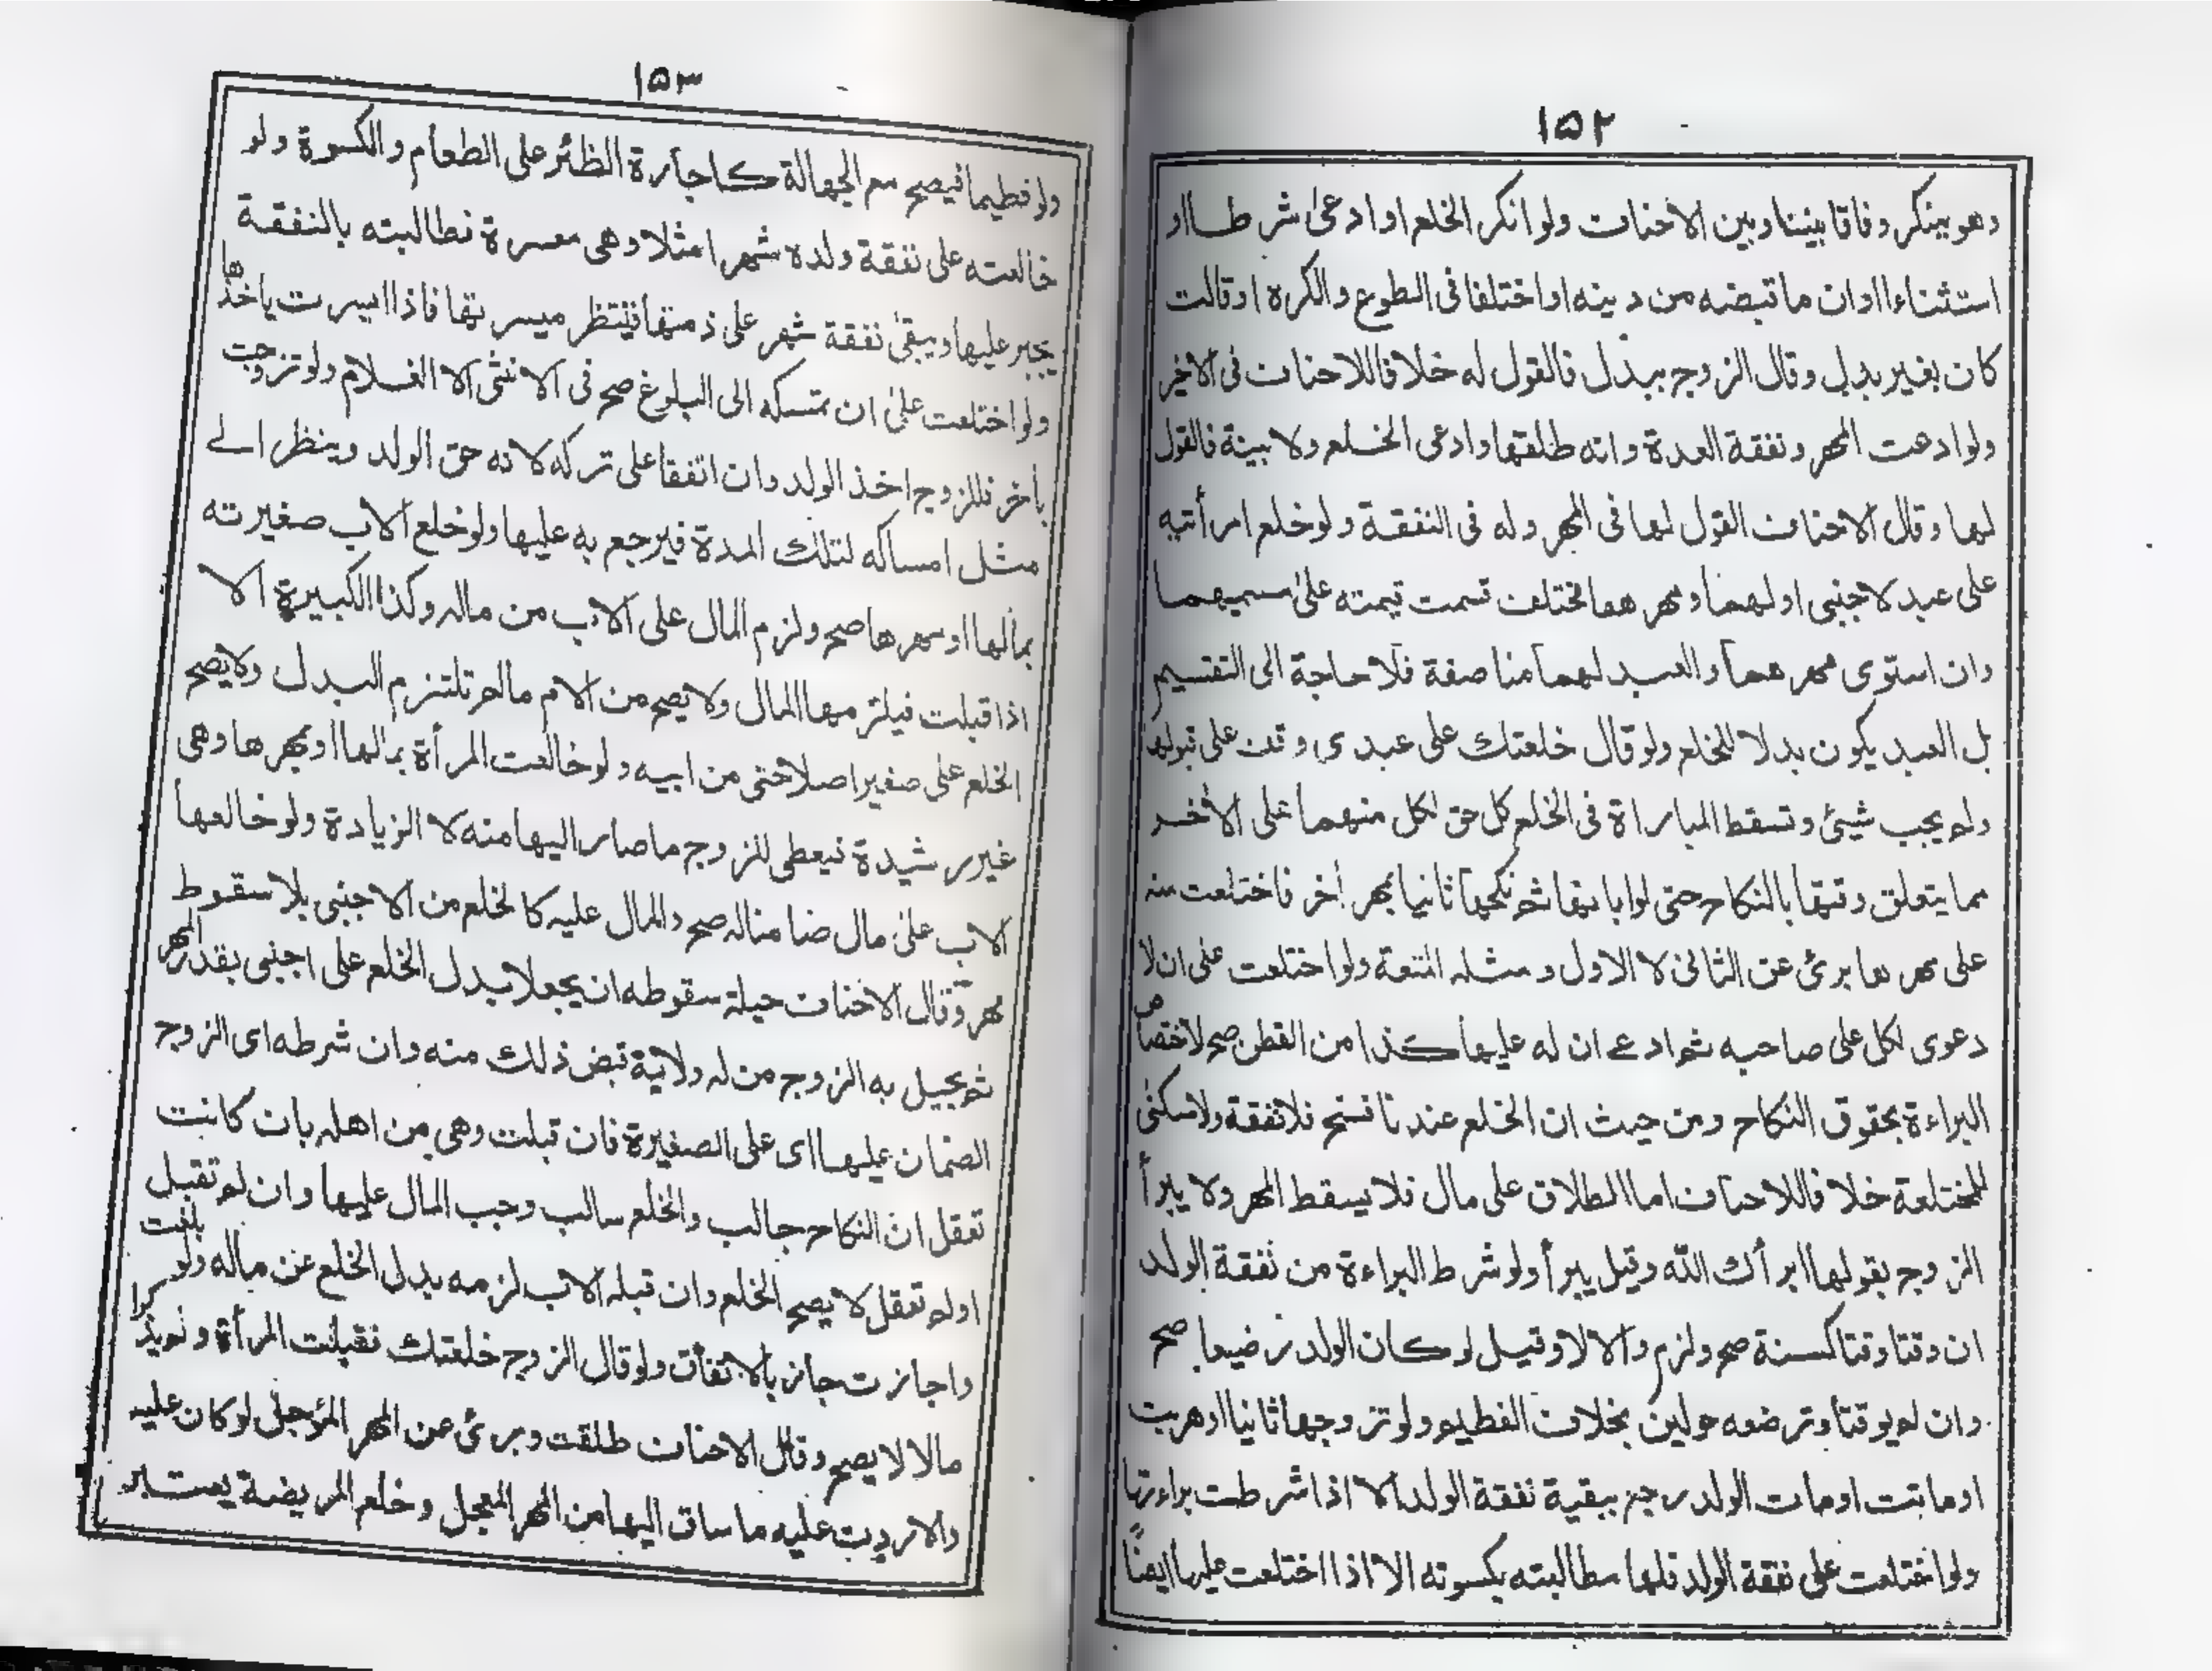 ١٥٢
وهو ينكر وفاقا بيننا وبين الاحناف ولو انكر الخلع او ادعى شرطا او
استثناء او ان ما قبضه من دينه او اختلفا فى الطوع والكره او قالت
كان بغير بدل وقال الزوج ببدل فالقول له خلافا للاحناف فى الاخير
ولو ادعت المهر ونفقة العدة وانه طلقها وادعى الخلع ولا بينة فالقول
لها وقال الاحناف القول لها فى المهر وله فى النفقة ولو خلع امرأتيه
على عبد لاجنبى او لهما ومهرهما مختلف قسمت قيمته على مسميهما
وان استوى مهرهما والعبد لهما مناصفة فلا حاجة الى التقسيم
بل العبد يكون بدلا للخلع ولو قال خلعتك على عبدى وقف على قبولها
ولم يجب شيئ وتسقط المباراة فى الخلع كل حق لكل منهما على الأخر
مما يتعلق وقتها بالنكاح حتى لو ابانها ثم نكحها ثانيا بمهر أخر فاختلعت منه
على مهرها برئ عن الثانى لا الاول ومثله المتعة ولو اختلعت على ان لا
دعوى لكل على صاحبه ثم ادعے ان له عليها كذا من القطن صح لاختصاص
البراءة بحقوق النكاح ومن حيث ان الخلع عندنا فسخ فلا نفقة ولا سكنى
للمختلعة خلافا للاحناف اما الطلاق على مال فلا يسقط المهر ولا يبرأ
الزوج بقولها ابرأك الله وقيل يبرأ ولو شرط البراءة من نفقة الولد
ان وقتا وقتا كسنة صح ولزم والا لا وقيل لو كان الولد رضيعا صح
وان لم يوقتا وترضعه حولين بخلاف الفطيم ولو تزوجها ثانيا او هربت
او ماتت او مات الولد رجع ببقية نفقة الولد الا اذا شرطت براءتها
ولو اختلعت على نفقة الولد فلها مطالبته بكسوته الا اذا اختلعت عليها ايضًا
١٥٣
ولو فطيما فيصح مع الجهالة كاجارة الظئر على الطعام والكسوة ولو
خالعته على نفقة ولده شهرا مثلا وهى معسرة فطالبته بالنفقة
يجبر عليها ويبقى نفقة شهر على ذمتها فينتظر ميسرتها فاذا ايسرت ياخذها
ولو اختلعت على ان تمسكه الى البلوغ صح فى الانثى الا الغلام ولو تزوجت
بأخر فللزوج اخذ الولد وان اتفقا على تركه لانه حق الولد وينظر الے
مثل امساكه لتلك المدة فيرجع به عليها ولو خلع الاب صغيرته
بمالها او مهرها صح ولزم المال على الاب من ماله وكذا الكبيرة الا
اذا قبلت فيلزمها المال ولا يصح من الام مالم تلتزم البدل ولا يصح
الخلع على صغير اصلا حتى من ابيه ولو خالعت المرأة بمالها او بمهرها وهى
غير رشيدة فيعطى للزوج ما صار اليها منه لا الزيادة ولو خالعها
الاب على مال ضامنا له صح والمال عليه كالخلع من الاجنبى بلا سقوط
مهر وقال الاحناف حيلة سقوطه ان يجعلا بدل الخلع على اجنبى بقدر المهر
ثم يحيل به الزوج من له ولاية قبض ذلك منه وان شرطه اى الزوج
الضمان عليها اى على الصغيرة فان قبلت وهى من اهله بان كانت
تعقل ان النكاح جالب والخلع سالب وجب المال عليها وان لم تقبل
او لم تعقل لا يصح الخلع وان قبله الاب لزمه بدل الخلع عن ماله ولو بلغت
واجازت جاز بالاتفاق ولو قال الزوج خلعتك فقبلت المرأة ولم يذكرا
مالا لا يصح وقال الاحناف طلقت وبرئ عن المهر المؤجل لو كان عليه
والا ردت عليه ما ساق اليها من المهر المعجل وخلع المريضة يعتبر